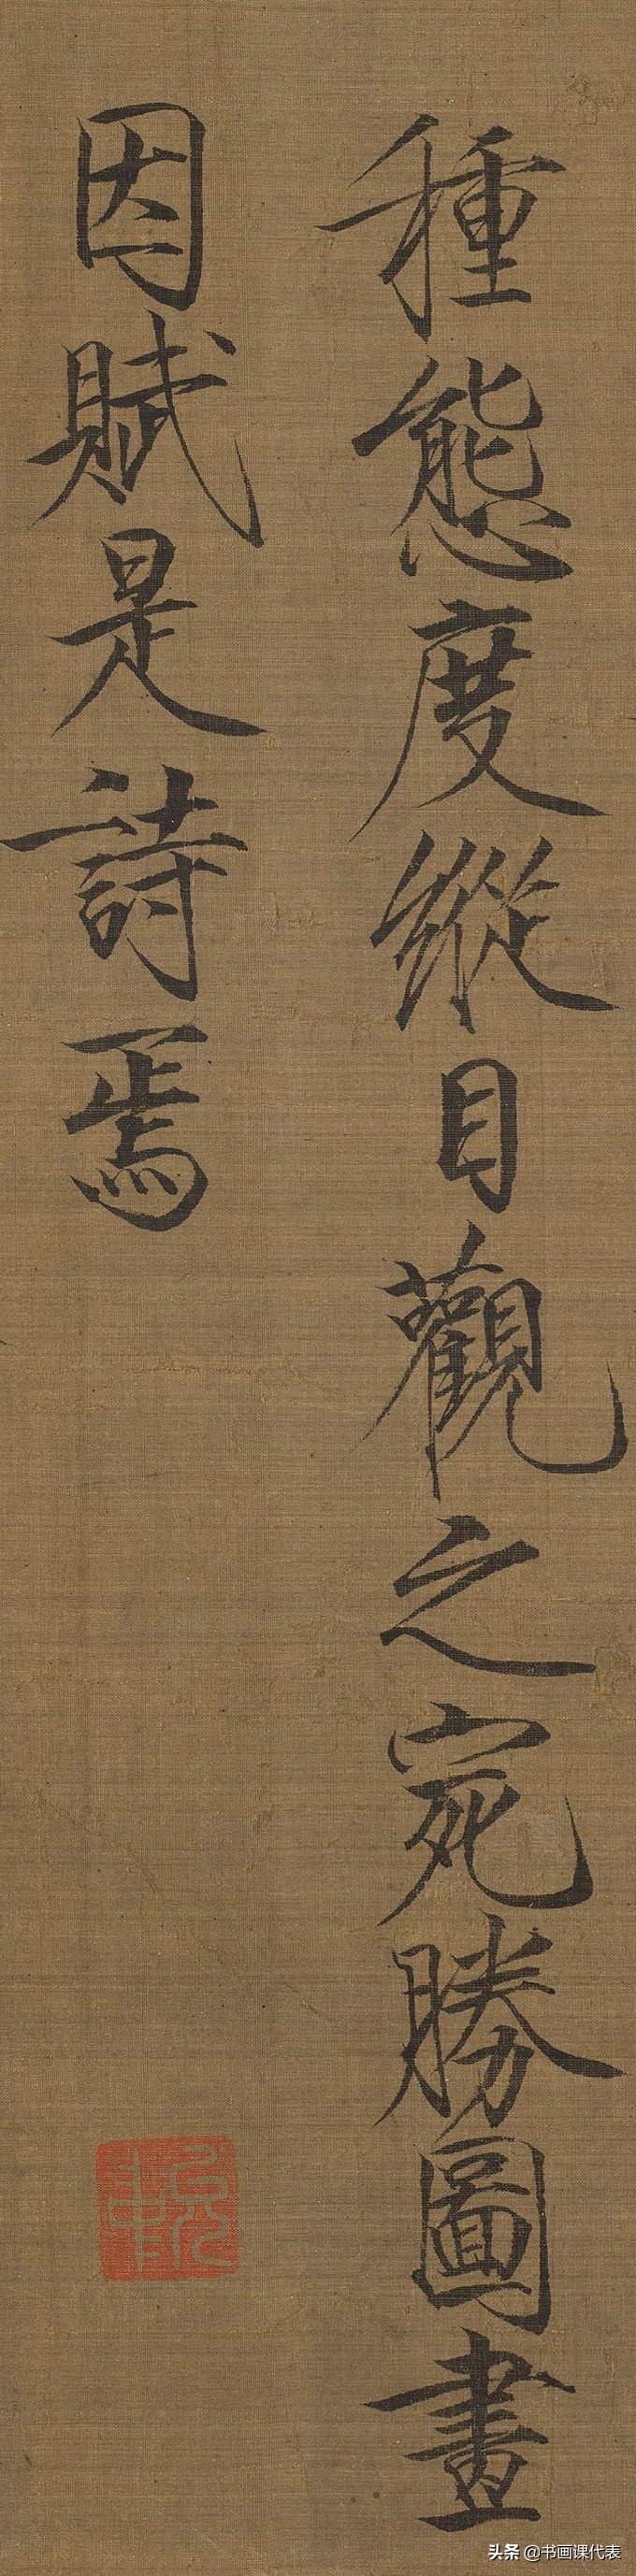 種態度縱目觀之宛勝圖畫
因賦是詩焉
头条 @书画课代表